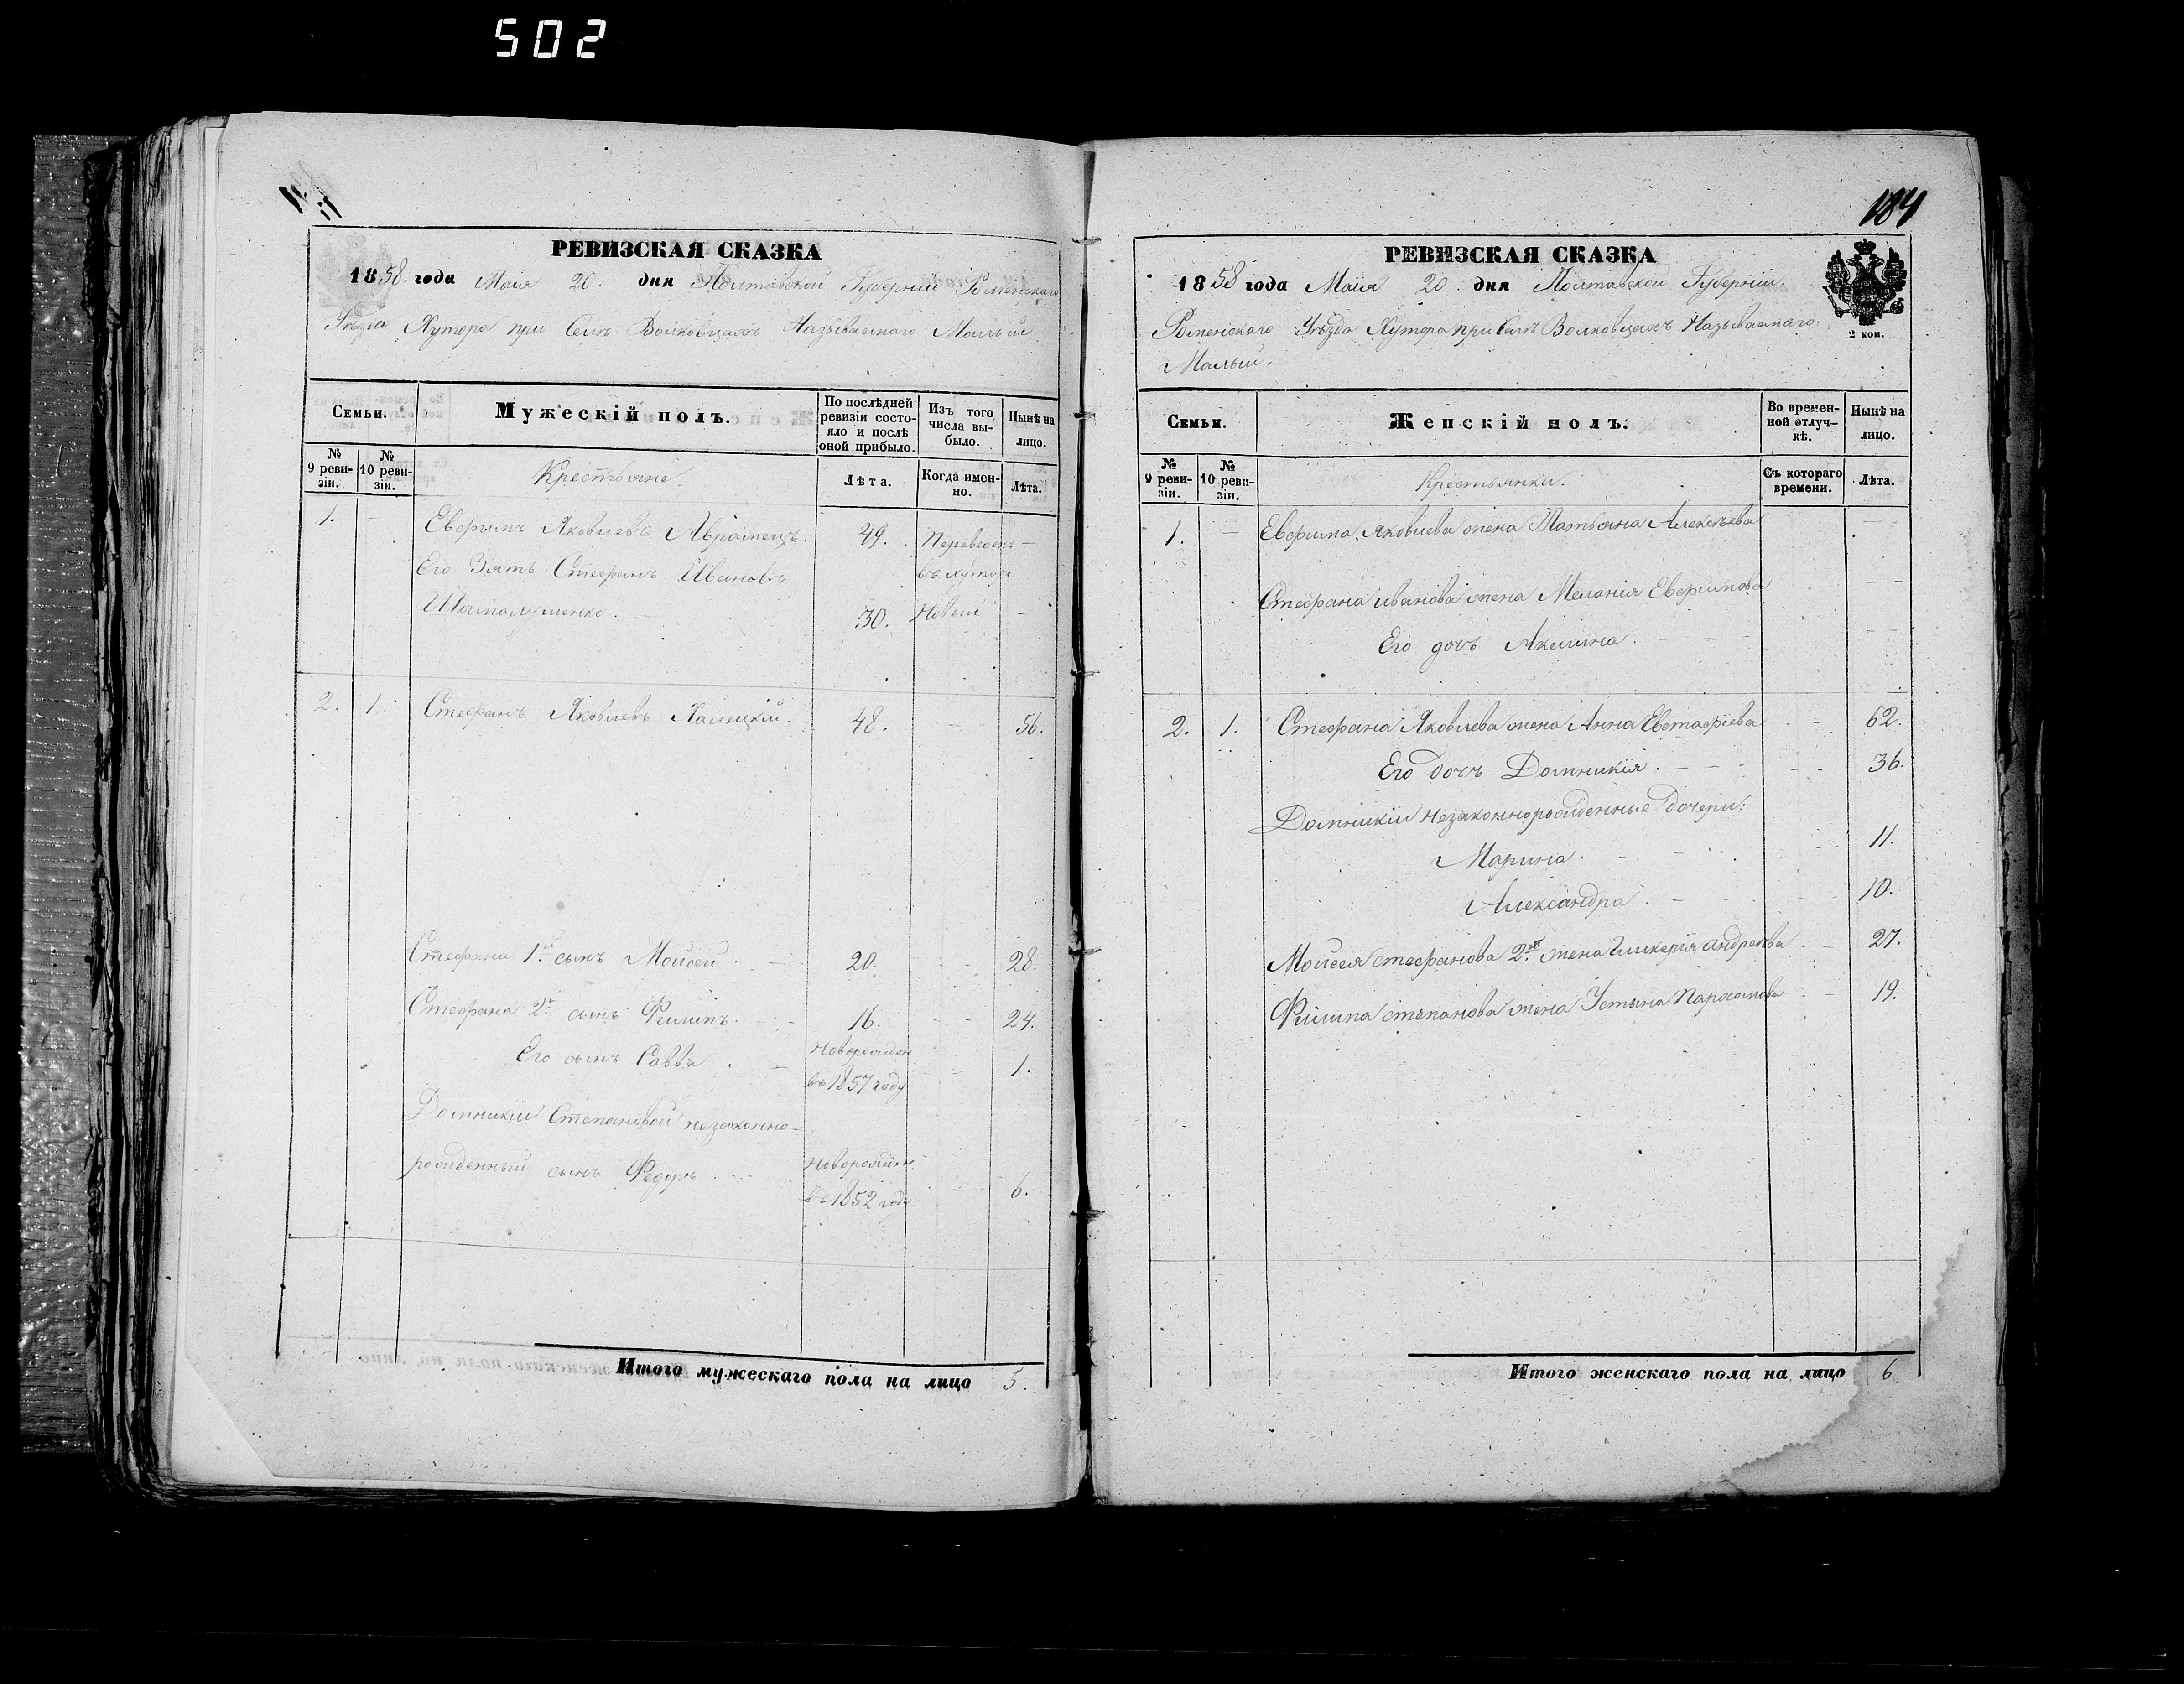 502
РЕВИЗСКАЯ СКАЗКА
1858 года Маія 20 дня Полтавской Губерніи Роменскаго
Уезда Хутора при Селе Волковцахъ Называемаго Малый
Семьи.
Мужескій полъ.
По последней ревизіи состояло и после оной прибыло.
Изъ того числа выбыло.
Ныне на лицо.
№ 9 ревизіи.
№ 10 ревизіи.
Крестьяне.
Лѣта.
Когда именно.
Лѣта.
1. - Евфимъ Яковлевъ Аврамецъ. 49. Переведенъ -
Его Зять Стефанъ Ивановъ въ хуторъ
30. Новый -
2. 1. Стефанъ Яковлевъ Халецкій. 48. - 56.
Стефана 1й сынъ Моисей. - 20. - 28.
Стефана 2й сынъ Филипъ. - 16. - 24.
Его сынъ Савва. - Новорожден - 1.
въ 1857 году
Домникіи Степановой незаконно-
рожденный сынъ Федоръ. Новорожден 6.
въ 1852 году
Итого мужескаго пола на лицо 5.
184
РЕВИЗСКАЯ СКАЗКА
1858 года Маія 20 дня Полтавской Губерніи.
Роменскаго Уѣзда Хутора при Селѣ Волковцахъ Называемаго
Малый.
2 коп.
Семьи.
Женскій полъ.
Во временной отлучкѣ.
Нынѣ на лицо.
№ 9 ревизіи.
№ 10 ревизіи.
Крестьянки.
Съ котораго времени.
Лѣта.
1. - Евфима Яковлева жена Татьяна Алексѣева
Стефана Иванова жена Меланія Евфимова - -
Его дочь Акилина. - - - -
2. 1. Стефана Яковлева жена Анна Евстафіева - 62.
Его дочь Домникія. - - - - 36.
Домникіи незаконнорожденные дочери:
Марина. - - 11.
Александра. - 10.
Моисея Стефанова 2я жена Гликерія Андреева. - 27.
Филипа Степанова жена Устина - 19.
Итого женскаго пола на лицо 6